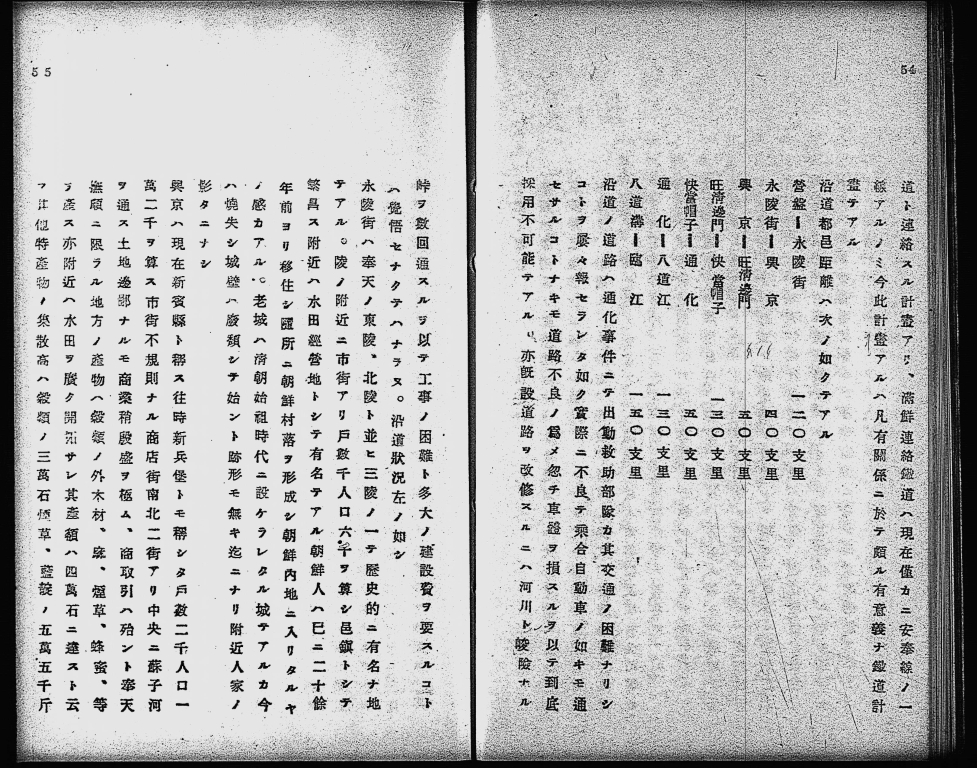 54
道ト連絡スル計畫アリ、滿鮮連絡鐵道ハ現在僅カニ安奉線ノ一
線アルノミ今此計畫アルハ凡有關係ニ於テ頗ル有意義ナ鐵道計
畫テアル
沿道都邑距離ハ次ノ如クテアル
營盤ー永陵街 一二〇支里
永陵街ー興京 四〇支里
興京ー旺淸邊門 五〇支里
旺淸邊門ー快當帽子 一三〇支里
快當帽子ー通化 五〇支里
通化ー八道江 一三〇支里
八道溝ー臨江 一五〇支里
沿道ノ道路ハ通化事件ニテ出動救助部隊カ其交通ノ困難ナリシ
コトヲ屢々報セラレンタ如ク實際ニ不良テ乘合自動車ノ如キモ通
セサルコトナキモ道路不良ノ爲メ忽チ車體ヲ損スルヲ以テ到底
採用不可能テアル、亦旣設道路ヲ改修スルニハ河川ト峻險ナル
55
峠ヲ數回通スルヲ以テ工事ノ困難ト多大ノ建設費ヲ要スルコト
ハ覺悟セナクテハナラヌ。沿道狀況左ノ如シ
永陵街ハ奉天ノ東陵、北陵ト並ヒ三陵ノ一テ歷史的ニ有名ナ地
テアル。陵ノ附近ニ市街アリ戶數千人口六千ヲ算シ邑鎭トシテ
繁昌ス附近ハ水田經營地トシテ有名テアル朝鮮人ハ已ニ二十餘
年前ヨリ移住シ隨所ニ朝鮮村落ヲ形成シ朝鮮內地ニ入リタルヤ
ノ感カアル。老城ハ淸朝始祖時代ニ設ケラレタル城テアルカ今
ハ燒失シ城壁ハ廢頽シテ始ント跡形モ無キ迄ニナリ附近人家ノ
影タニナシ
興京ハ現在新賓縣ト稱ス往時新兵堡トモ稱シタ戶數二千人口一
萬二千ヲ算ス市街不規則ナル商店街南北二街アリ中央ニ蘇子河
ヲ通ス土地邊鄙ナルモ商業稍殷盛ヲ極ム、商取引ハ殆ント奉天
撫順ニ限ラル地方ノ產物ハ穀類ノ外木材、麻、煙草、蜂蜜、等
ヲ產ス亦附近ハ水田ヲ廣ク開拓サレ其產額ハ四萬石ニ達スト云
フ其他特產物ノ集散高ハ穀類ノ三萬石煙草、藍靛ノ五萬五千斤